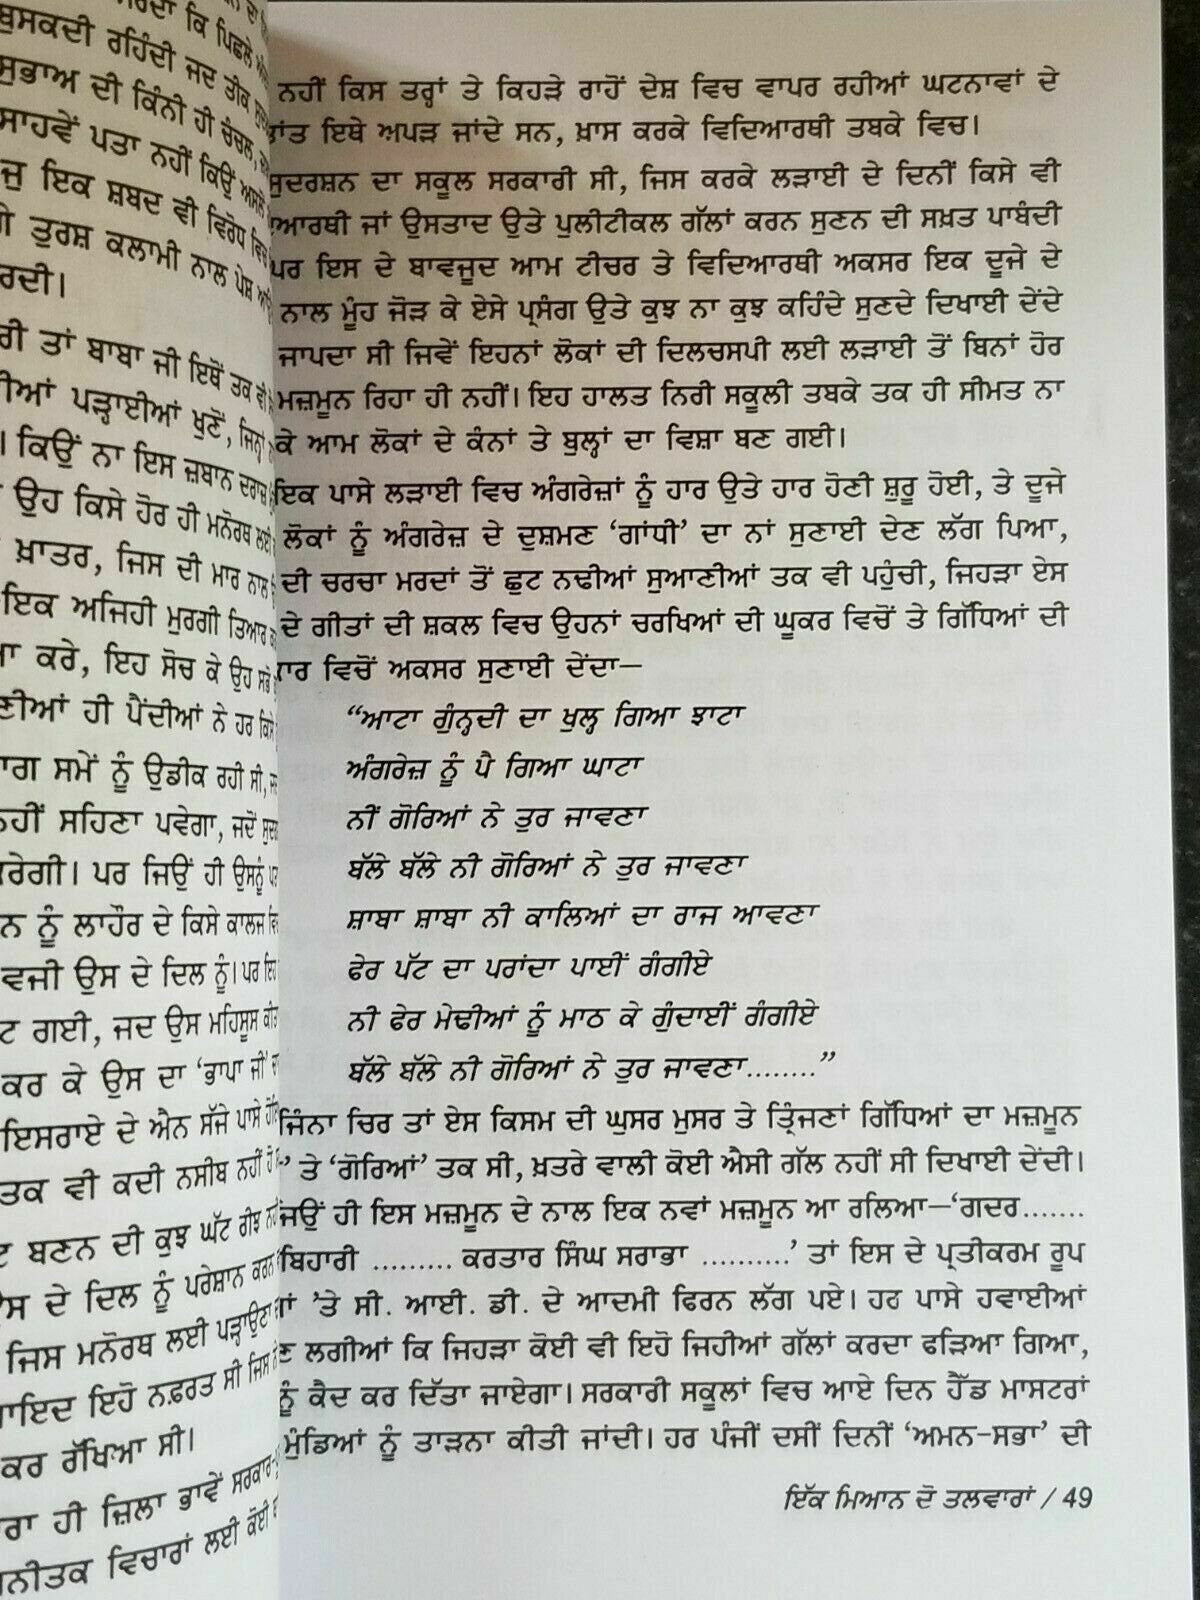 ਬੁਸਕਦੀ ਰਹਿੰਦੀ ਜਦ ਤੀਕ
ਸੁਭਾਅ ਦੀ ਕਿੰਨੀ ਹੀ ਚੰਚਲ,
ਸਾਹਵੇਂ ਪਤਾ ਨਹੀਂ ਕਿਉਂ ਅਸਲੋਂ
ਇਕ ਸ਼ਬਦ ਵੀ ਵਿਰੋਧ ਵਿਚ
ਤੁਰਸ਼ ਕਲਾਮੀ ਨਾਲ ਪੇਸ਼
ਰਦੀ।
ਰੀ ਤਾਂ ਬਾਬਾ ਜੀ ਇਥੋਂ ਤਕ ਵੀ
ਪੜ੍ਹਾਈਆਂ ਖੁਣੋਂ, ਜਿਨ੍ਹਾਂ
। ਕਿਉਂ ਨਾ ਇਸ ਜ਼ਬਾਨ ਦਰਾਜ਼
ਉਹ ਕਿਸੇ ਹੋਰ ਹੀ ਮਨੋਰਥ ਲਈ
ਖ਼ਾਤਰ, ਜਿਸ ਦੀ ਮਾਰ ਨਾਲ
ਇਕ ਅਜਿਹੀ ਮੁਰਗੀ ਤਿਆਰ
ਕਰੇ, ਇਹ ਸੋਚ ਕੇ ਉਹ ਸਭੇ
ਣੀਆਂ ਹੀ ਪੈਂਦੀਆਂ ਨੇ ਹਰ ਕਿਸੇ
ਾਗ ਸਮੇਂ ਨੂੰ ਉਡੀਕ ਰਹੀ ਸੀ,
ਨਹੀਂ ਸਹਿਣਾ ਪਵੇਗਾ, ਜਦੋਂ
ਕਰੇਗੀ। ਪਰ ਜਿਉਂ ਹੀ ਉਸਨੂੰ
ਨ ਨੂੰ ਲਾਹੌਰ ਦੇ ਕਿਸੇ ਕਾਲਜ
ਵਜੀ ਉਸ ਦੇ ਦਿਲ ਨੂੰ। ਪਰ ਇਹ
ਟ ਗਈ, ਜਦ ਉਸ ਮਹਿਸੂਸ ਕੀਤਾ
ਕਰ ਕੇ ਉਸ ਦਾ ‘ਭਾਪਾ ਜੀ’
ਇਸਰਾਏ ਦੇ ਐਨ ਸੱਜੇ ਪਾਸੇ
ਤਕ ਵੀ ਕਦੀ ਨਸੀਬ ਨਹੀਂ
ਬਣਨ ਦੀ ਕੁਝ ਘੱਟ ਰੀਝ
ਦੇ ਦਿਲ ਨੂੰ ਪਰੇਸ਼ਾਨ ਕਰਨ
ਜਿਸ ਮਨੋਰਥ ਲਈ ਪੜ੍ਹਾਉਣਾ
ਾਇਦ ਇਹੋ ਨਫ਼ਰਤ ਸੀ ਜਿਸ
ਕਰ ਰੱਖਿਆ ਸੀ।
ਰਾ ਹੀ ਜ਼ਿਲਾ ਭਾਵੇਂ ਸਰਕਾਰ-
ਨੀਤਕ ਵਿਚਾਰਾਂ ਲਈ ਕੋਈ
ਨਹੀਂ ਕਿਸ ਤਰ੍ਹਾਂ ਤੇ ਕਿਹੜੇ ਰਾਹੋਂ ਦੇਸ਼ ਵਿਚ ਵਾਪਰ ਰਹੀਆਂ ਘਟਨਾਵਾਂ ਦੇ
ਾਂਤ ਇਥੇ ਅਪੜ ਜਾਂਦੇ ਸਨ, ਖ਼ਾਸ ਕਰਕੇ ਵਿਦਿਆਰਥੀ ਤਬਕੇ ਵਿਚ।
ਸੁਦਰਸ਼ਨ ਦਾ ਸਕੂਲ ਸਰਕਾਰੀ ਸੀ, ਜਿਸ ਕਰਕੇ ਲੜਾਈ ਦੇ ਦਿਨੀਂ ਕਿਸੇ ਵੀ
ਆਰਥੀ ਜਾਂ ਉਸਤਾਦ ਉਤੇ ਪੁਲੀਟੀਕਲ ਗੱਲਾਂ ਕਰਨ ਸੁਣਨ ਦੀ ਸਖ਼ਤ ਪਾਬੰਦੀ
ਪਰ ਇਸ ਦੇ ਬਾਵਜੂਦ ਆਮ ਟੀਚਰ ਤੇ ਵਿਦਿਆਰਥੀ ਅਕਸਰ ਇਕ ਦੂਜੇ ਦੇ
ਨਾਲ ਮੂੰਹ ਜੋੜ ਕੇ ਏਸੇ ਪ੍ਰਸੰਗ ਉਤੇ ਕੁਝ ਨਾ ਕੁਝ ਕਹਿੰਦੇ ਸੁਣਦੇ ਦਿਖਾਈ ਦੇਂਦੇ
ਜਾਪਦਾ ਸੀ ਜਿਵੇਂ ਇਹਨਾਂ ਲੋਕਾਂ ਦੀ ਦਿਲਚਸਪੀ ਲਈ ਲੜਾਈ ਤੋਂ ਬਿਨਾਂ ਹੋਰ
ਮਜ਼ਮੂਨ ਰਿਹਾ ਹੀ ਨਹੀਂ। ਇਹ ਹਾਲਤ ਨਿਰੀ ਸਕੂਲੀ ਤਬਕੇ ਤਕ ਹੀ ਸੀਮਤ ਨਾ
ਕੇ ਆਮ ਲੋਕਾਂ ਦੇ ਕੰਨਾਂ ਤੇ ਬੁਲ੍ਹਾਂ ਦਾ ਵਿਸ਼ਾ ਬਣ ਗਈ।
ਇਕ ਪਾਸੇ ਲੜਾਈ ਵਿਚ ਅੰਗਰੇਜ਼ਾਂ ਨੂੰ ਹਾਰ ਉਤੇ ਹਾਰ ਹੋਣੀ ਸ਼ੁਰੂ ਹੋਈ, ਤੇ ਦੂਜੇ
ਲੋਕਾਂ ਨੂੰ ਅੰਗਰੇਜ਼ ਦੇ ਦੁਸ਼ਮਣ ‘ਗਾਂਧੀ’ ਦਾ ਨਾਂ ਸੁਣਾਈ ਦੇਣ ਲੱਗ ਪਿਆ,
ਦੀ ਚਰਚਾ ਮਰਦਾਂ ਤੋਂ ਛੁਟ ਨਢੀਆਂ ਸੁਆਣੀਆਂ ਤਕ ਵੀ ਪਹੁੰਚੀ, ਜਿਹੜਾ ਏਸ
ਦੇ ਗੀਤਾਂ ਦੀ ਸ਼ਕਲ ਵਿਚ ਉਹਨਾਂ ਚਰਖਿਆਂ ਦੀ ਘੂਕਰ ਵਿਚੋਂ ਤੇ ਗਿੱਧਿਆਂ ਦੀ
ਾਰ ਵਿਚੋਂ ਅਕਸਰ ਸੁਣਾਈ ਦੇਂਦਾ—
“ਆਟਾ ਗੁੰਨ੍ਹਦੀ ਦਾ ਖੁਲ੍ਹ ਗਿਆ ਝਾਟਾ
ਅੰਗਰੇਜ਼ ਨੂੰ ਪੈ ਗਿਆ ਘਾਟਾ
ਨੀਂ ਗੋਰਿਆਂ ਨੇ ਤੁਰ ਜਾਵਣਾ
ਬੱਲੇ ਬੱਲੇ ਨੀ ਗੋਰਿਆਂ ਨੇ ਤੁਰ ਜਾਵਣਾ
ਸ਼ਾਬਾ ਸ਼ਾਬਾ ਨੀ ਕਾਲਿਆਂ ਦਾ ਰਾਜ ਆਵਣਾ
ਫੇਰ ਪੱਟ ਦਾ ਪਰਾਂਦਾ ਪਾਈਂ ਗੰਗੀਏ
ਨੀ ਫੇਰ ਮੇਢੀਆਂ ਨੂੰ ਮਾਠ ਕੇ ਗੁੰਦਾਈਂ ਗੰਗੀਏ
ਬੱਲੇ ਬੱਲੇ ਨੀ ਗੋਰਿਆਂ ਨੇ ਤੁਰ ਜਾਵਣਾ........”
ਜਿੰਨਾ ਚਿਰ ਤਾਂ ਏਸ ਕਿਸਮ ਦੀ ਘੁਸਰ ਮੁਸਰ ਤੇ ਤ੍ਰਿੰਜਣਾਂ ਗਿੱਧਿਆਂ ਦਾ ਮਜ਼ਮੂਨ
’ ਤੇ ‘ਗੋਰਿਆਂ’ ਤਕ ਸੀ, ਖ਼ਤਰੇ ਵਾਲੀ ਕੋਈ ਐਸੀ ਗੱਲ ਨਹੀਂ ਸੀ ਦਿਖਾਈ ਦੇਂਦੀ।
ਜਿਉਂ ਹੀ ਇਸ ਮਜ਼ਮੂਨ ਦੇ ਨਾਲ ਇਕ ਨਵਾਂ ਮਜ਼ਮੂਨ ਆ ਰਲਿਆ—‘ਗਦਰ.......
ਬਿਹਾਰੀ ......... ਕਰਤਾਰ ਸਿੰਘ ਸਰਾਭਾ ..........’ ਤਾਂ ਇਸ ਦੇ ਪ੍ਰਤੀਕਰਮ ਰੂਪ
ਾਂ ’ਤੇ ਸੀ. ਆਈ. ਡੀ. ਦੇ ਆਦਮੀ ਫਿਰਨ ਲੱਗ ਪਏ। ਹਰ ਪਾਸੇ ਹਵਾਈਆਂ
ਣ ਲਗੀਆਂ ਕਿ ਜਿਹੜਾ ਕੋਈ ਵੀ ਇਹੋ ਜਿਹੀਆਂ ਗੱਲਾਂ ਕਰਦਾ ਫੜਿਆ ਗਿਆ,
ਨੂੰ ਕੈਦ ਕਰ ਦਿੱਤਾ ਜਾਏਗਾ। ਸਰਕਾਰੀ ਸਕੂਲਾਂ ਵਿਚ ਆਏ ਦਿਨ ਹੈੱਡ ਮਾਸਟਰਾਂ
ਮੁੰਡਿਆਂ ਨੂੰ ਤਾੜਨਾ ਕੀਤੀ ਜਾਂਦੀ। ਹਰ ਪੰਜੀਂ ਦਸੀਂ ਦਿਨੀਂ ‘ਅਮਨ-ਸਭਾ’ ਦੀ
ਇੱਕ ਮਿਆਨ ਦੋ ਤਲਵਾਰਾਂ / 49